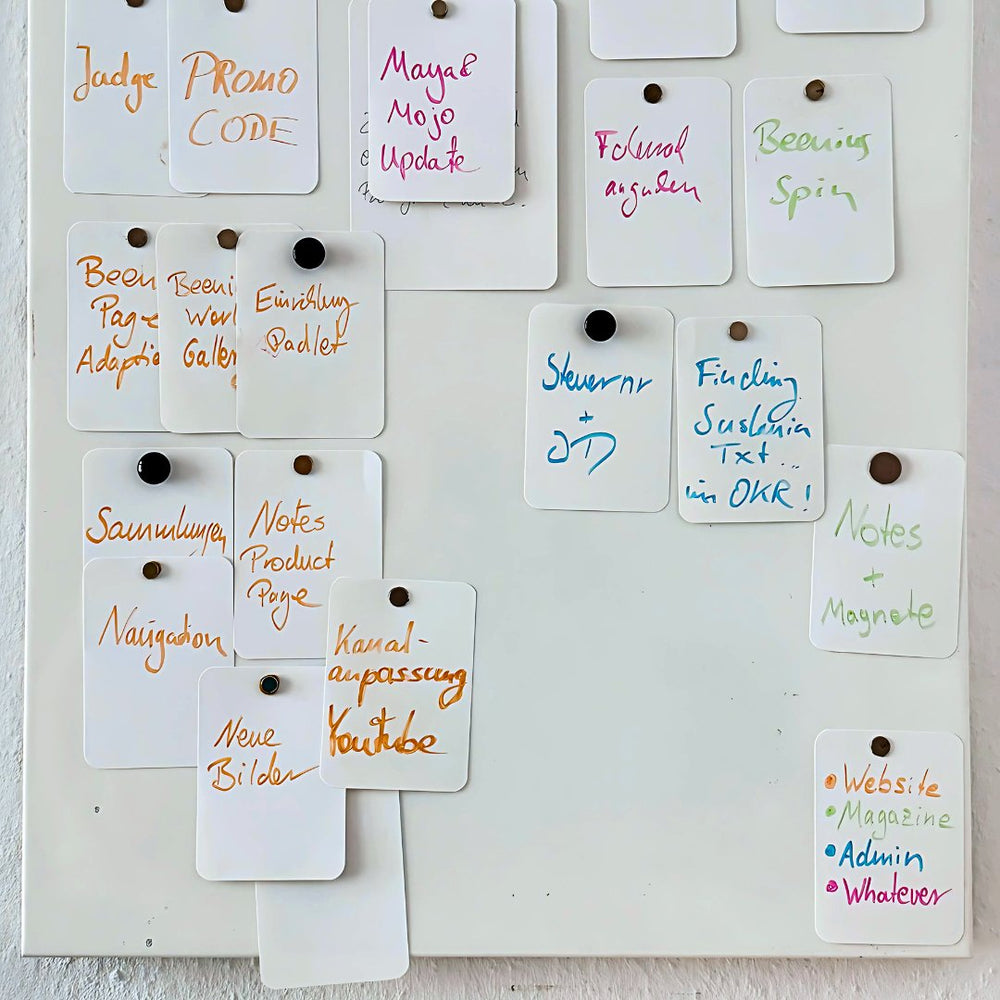 Judge
PROMO
CODE
Maya &
Mojo
Update
Beenings
Spin
Been
Page
Adaptio
Beeni
Worl
Galler
Einrichtung
Padlet
Steuernr
+
Finding
Sustainia
Txt...
im OKR!
Sammlungen
Notes
Product
Page
Notes
+
Magnete
Navigation
Kanal-
anpassung
Youtube
Neue
Bilder
• Website
• Magazine
• Admin
• Whatever